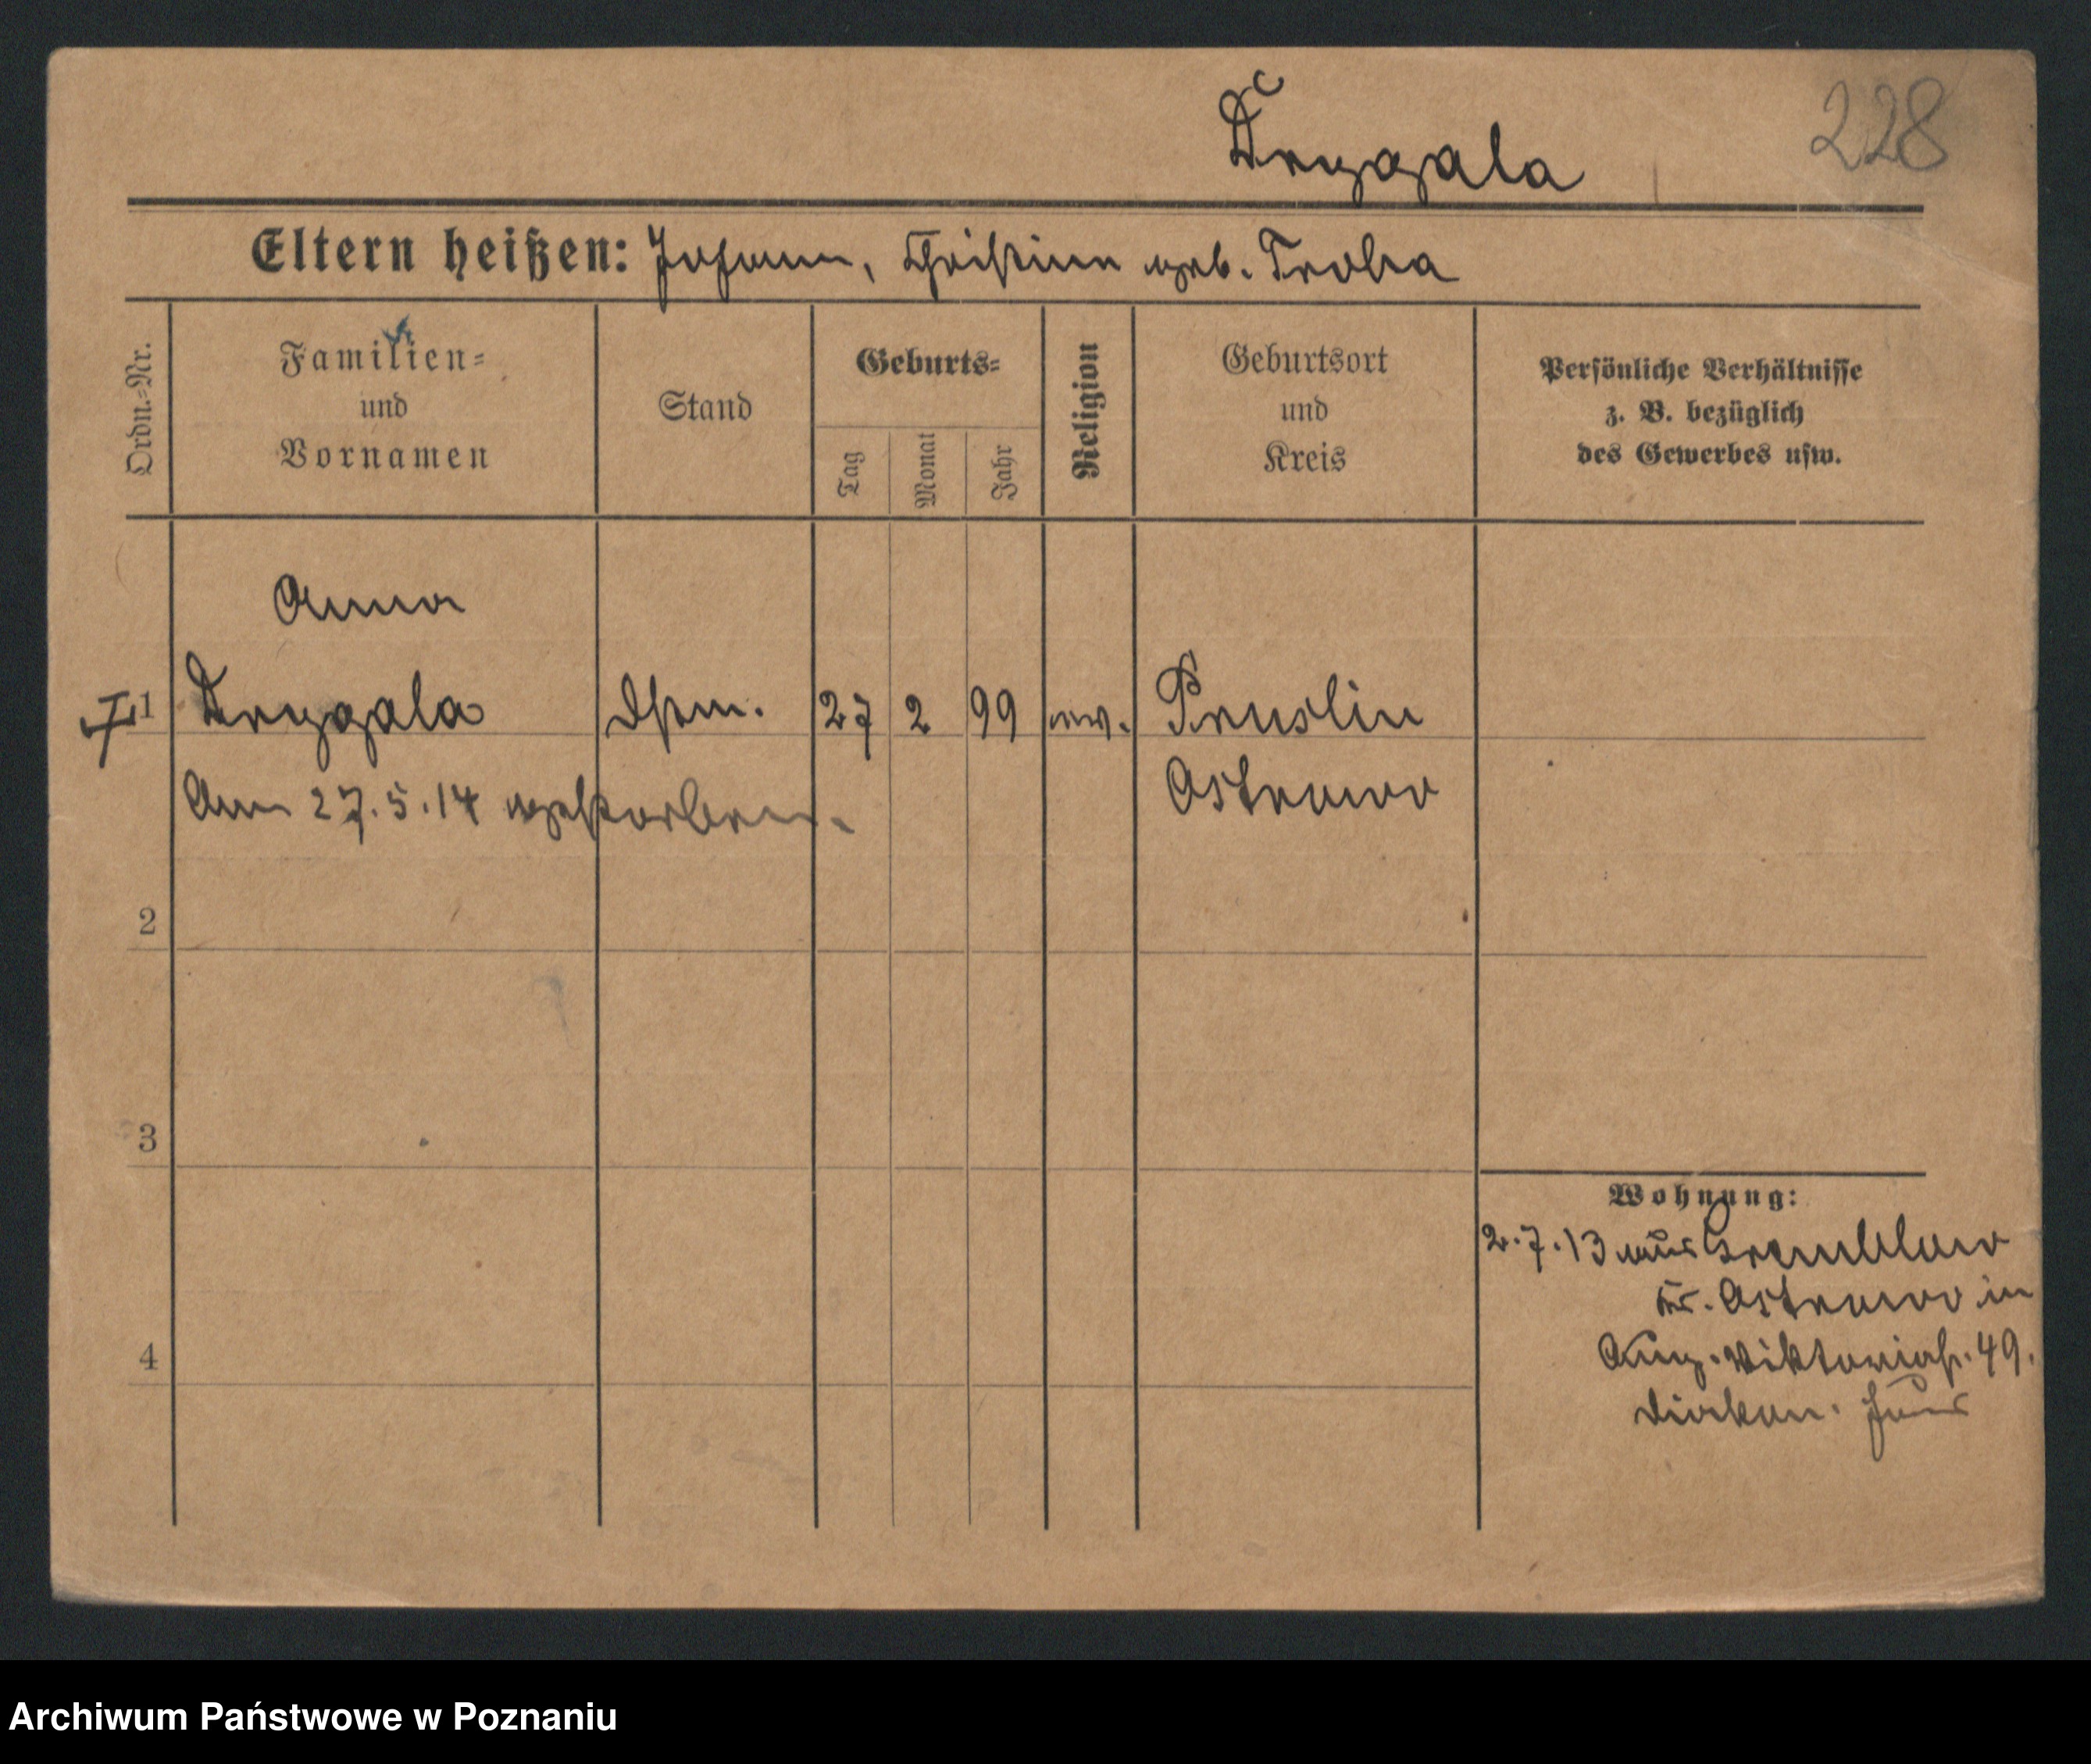 228
Dryggala
Eltern heißen: Johann, Christine geb. Troka
Ordn.-Nr.
Familien-
und
Vornamen
Stand
Geburts-
Tag
Monat
Jahr
Religion
Geburtsort
und
Kreis
Persönliche Verhältnisse
z. B. bezüglich
des Gewerbes usw.
Anna
1 Dryggala Dstm. 27 2 99 ev. Pruslin
Am 27.5.14 gestorben. Ostrowo
2
3
4
Wohnung:
2.7.13 aus
Kr. Ostrowo in
Aug. Viktoriastr. 49.
Diakon. Haus
Archiwum Państwowe w Poznaniu